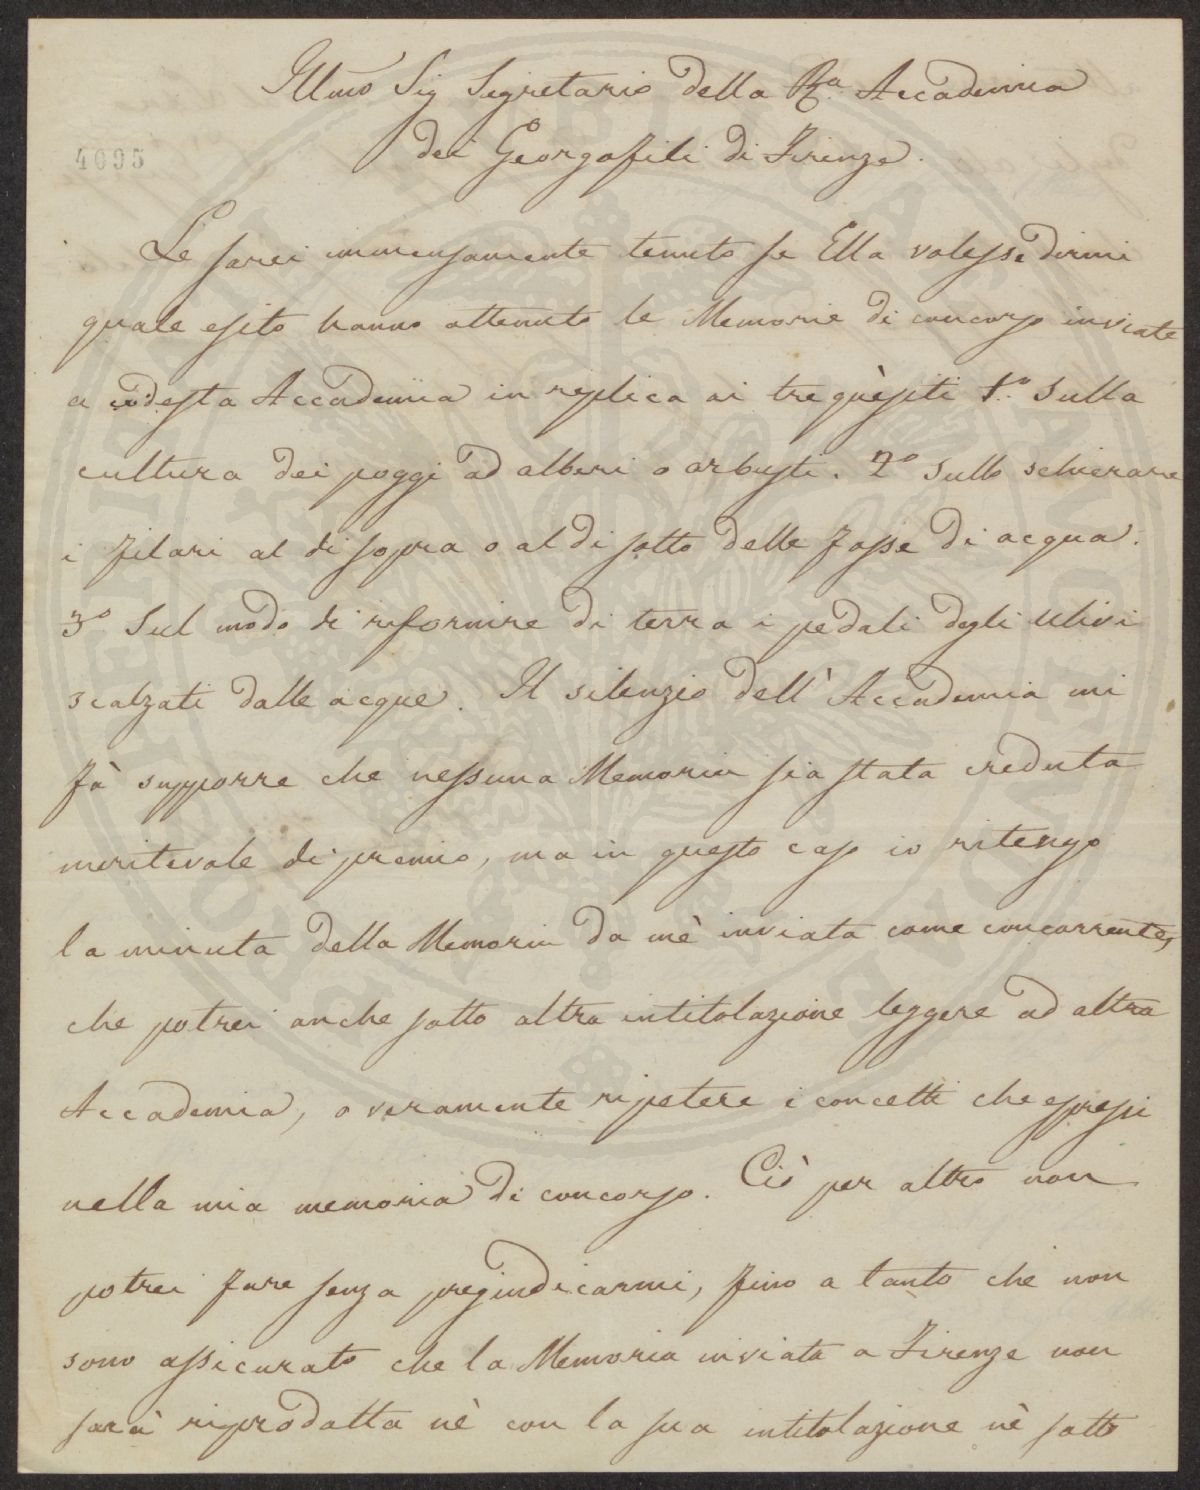 Illmo Sig Segretario della Ra. Accademia
4095
dei Georgofili di Firenze.
Le sarei immensamente tenuto se Ella volesse dirmi
quale esito hanno ottenuto le Memorie di concorso inviate
a codesta Accademia in replica ai tre quèsiti 1.o Sulla
cultura dei poggi ad alberi o arbusti. 2o Sullo schierare
i filari al di sopra o al di sotto delle fosse di acqua.
3o Sul modo di rifornire di terra i pedali degli ulivi
scalzati dalle acque. Il silenzio dell' Accademia mi
fà supporre che nessuna Memoria sia stata creduta
meritevole di premio, ma in questo caso io ritengo
la minuta della Memoria da mè inviata come concorrente,
che potrei anche sotto altra intitolazione leggere ad altra
Accademia, o veramente ripetere i concetti che espressi
nella mia memoria di concorso. Ciò per altro non
potrei fare senza pregiudicarmi, fino a tanto che non
sono assicurato che la Memoria inviata a Firenze non
sarà riprodotta nè con la sua intitolazione nè sotto